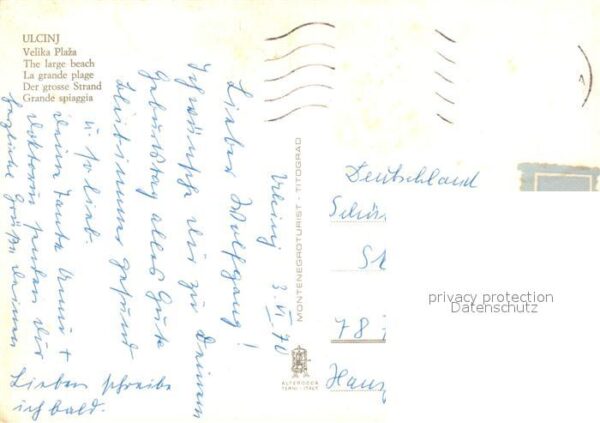 ULCINJ
Velika Plaža
The large beach
La grande plage
Der grosse Strand
Grande spiaggia
Ulcinj 3. VI. 70
Lieber Wolfgang!
Ich wünsche Dir zu Deinem
Geburtstag alles Gute
bleib immer gesund
u. so lieb.
Deine Tante +
Doktorin senden Dir
herzliche Grüße Deinen
Lieben schreibe
ich bald.
MONTENEGROTURIST - TITOGRAD
ALTEROCCA
TERNI - ITALY
Deutschland
78
privacy protection
Datenschutz